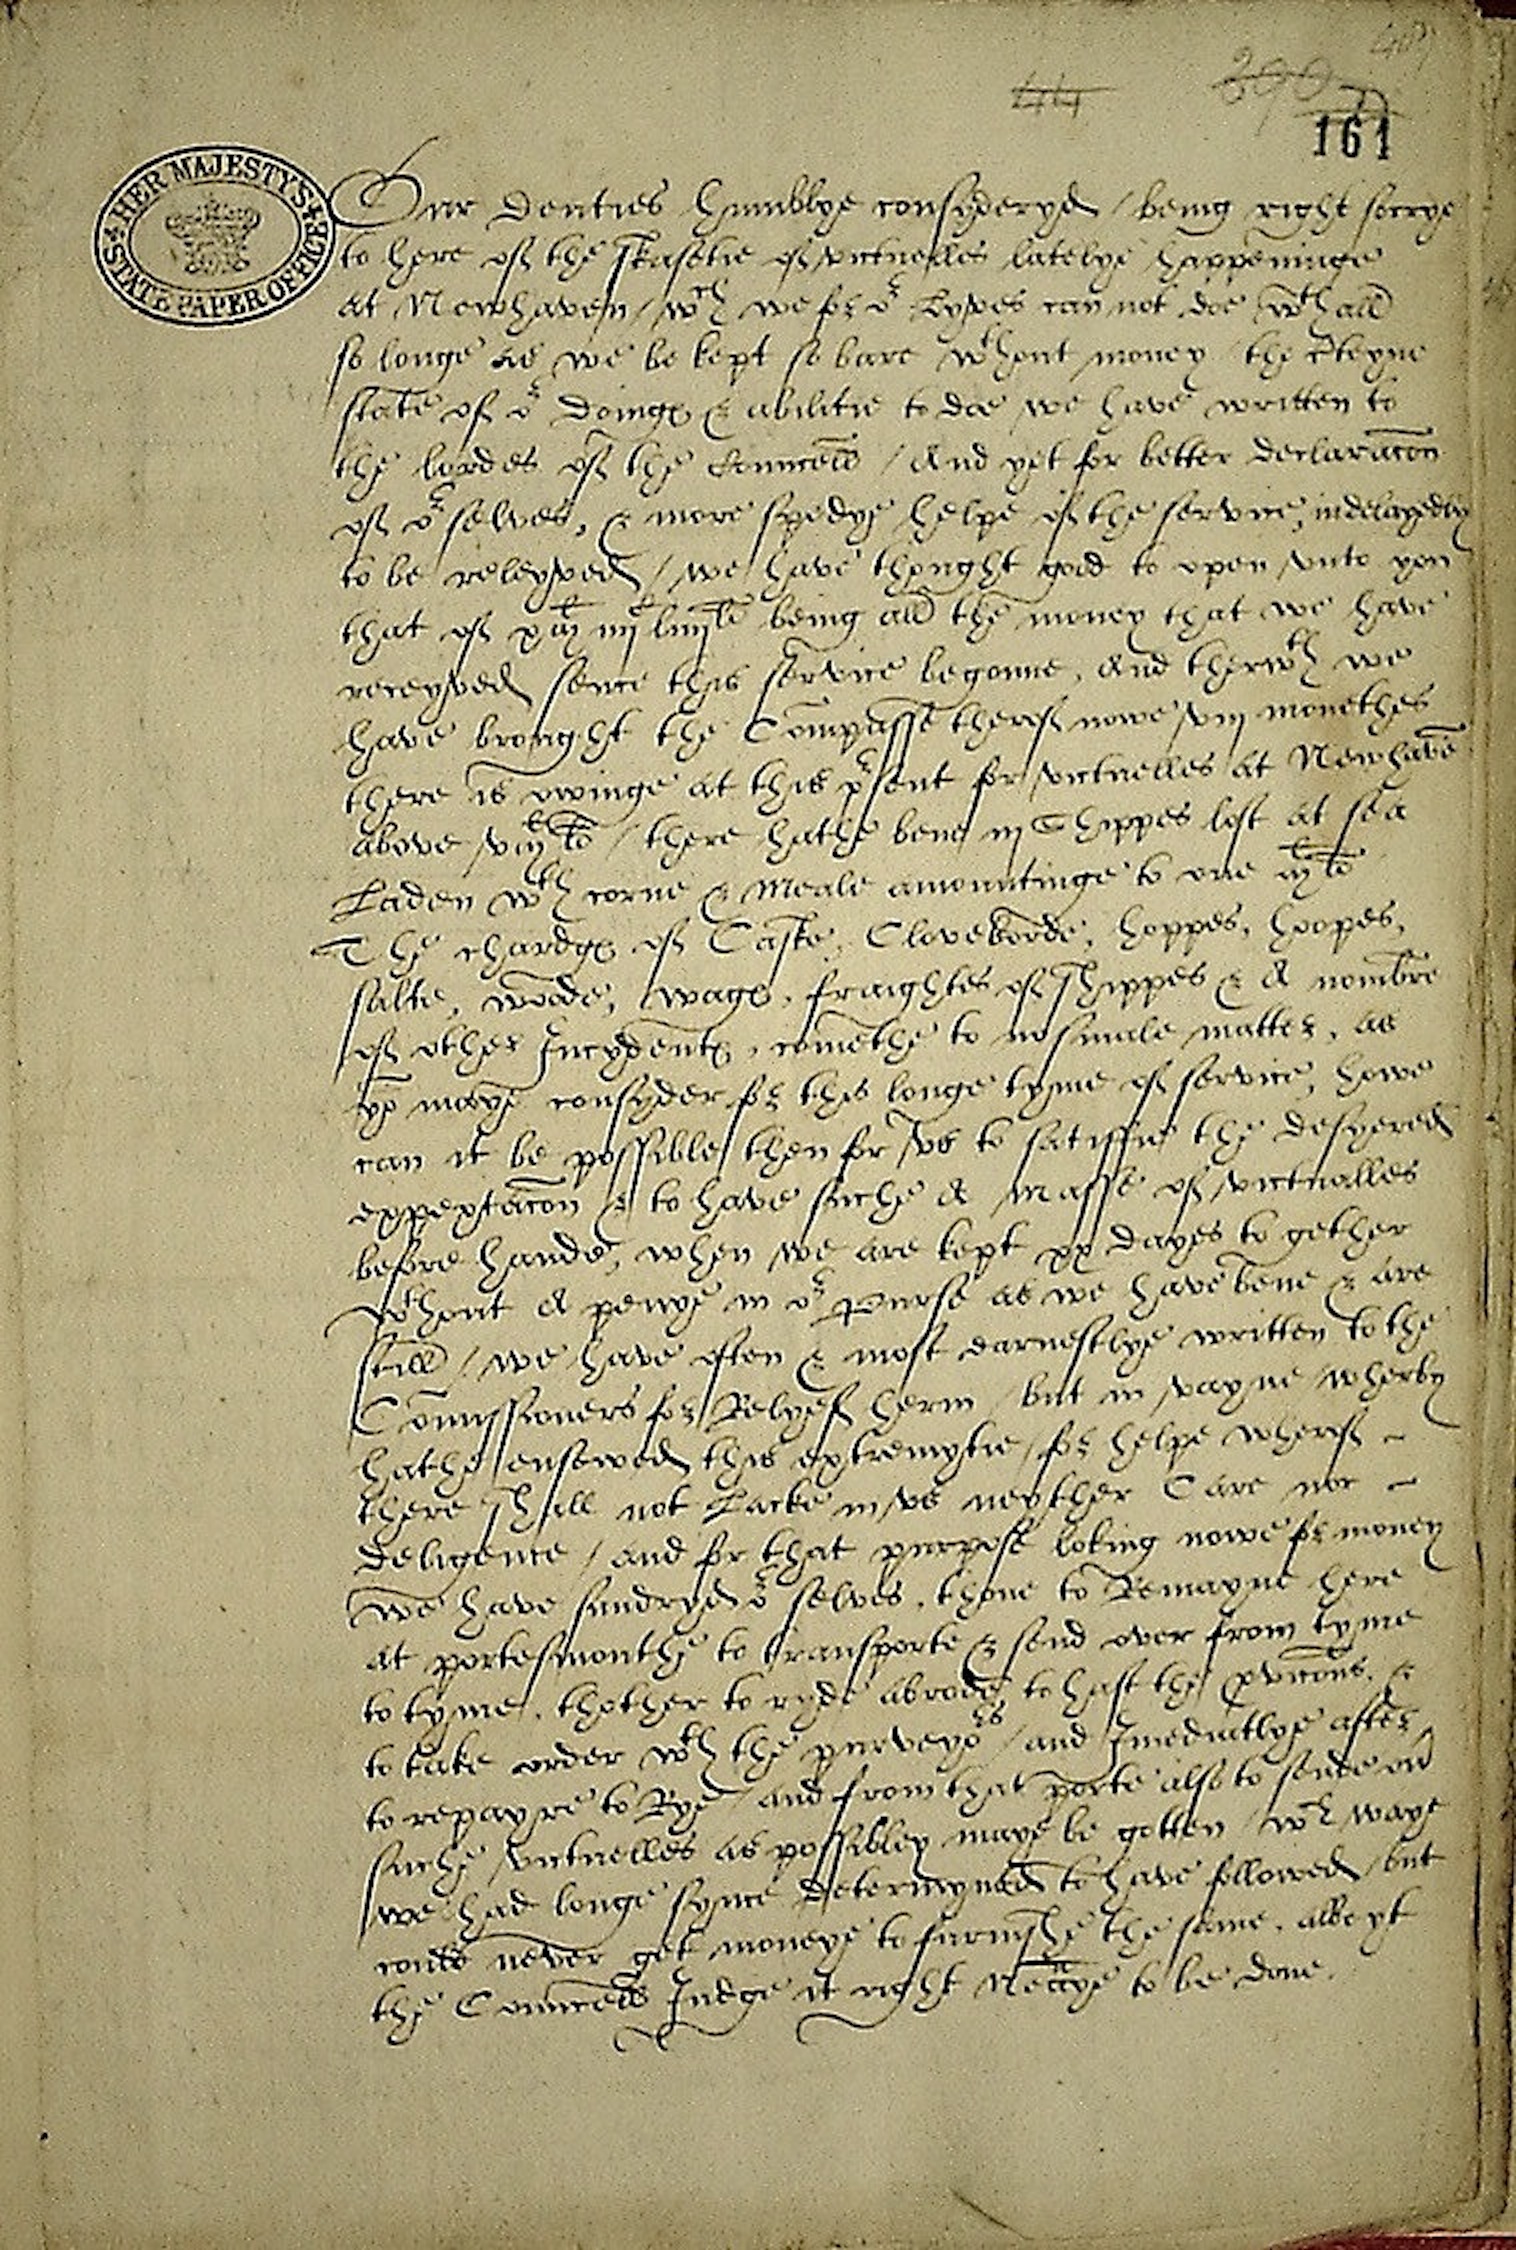 161
HER MAJESTY'S
STATE PAPER OFFICE
Our Deuties humblye consyderyd / being right sorrye
to here of the skasetie of victuelles latelye happeninge
at Newhaven / wch we for or Lyves can not doe wth all
so longe as we be kept so bare wthout money / the cteyne
state of or doinge & abilitie to doe we have written to
the lordes of the Councell / And yet for better declaracon
of or selves, & more spedye helpe of the service, indelayedly
to be releyved / we have thought good to open unto you
that of being all the money that we have
receyved sence this service begonne, And therwth we
have brought the Compasse therof nowe viij monethes
there is owinge at this psent for victuelles at Newhaven
above / there hathe bene iij Shippes lost at sea
Laden wth corne & Meale amountinge to one
The chardge of Caske, Cloveborde, hoppes, hoopes,
salte, woode, wage, fraightes of shippes & A nombre
of other Incydente, comethe to no smale matter, as
yo maye consyder for this longe tyme of service, howe
can it be possible then for us to satisfie the desyered
expextacon & to have suche A Masse of victualles
before hande, when we are kept xx dayes to gether
wthout A penye in or Purse as we have bene & are
still / we have often & most earnestlye written to the
Comyssioners for Relyef herin / but in vayne / wherby
hathe ensewed this extremytie / for helpe wherof -
there shall not Lacke in us neyther Care nor -
deligence / and for that purpose loking nowe for money
we have sundryd or selves, thone to Remayne here
at portesmouthe to transporte & send over from tyme
to tyme, thother to ryde abrode, to hast the pvicons, &
to take order wth the purveyors / and Imediatlye after
to repayre to Rye / and from that porte also to sende over
suche victuelles as possibley maye be gotten / wch waye
we had longe synce determyned to have followed / but
coulde never get moneye to furnishe the same, albeyt
the Councell Judge it right Necessarye to be done.